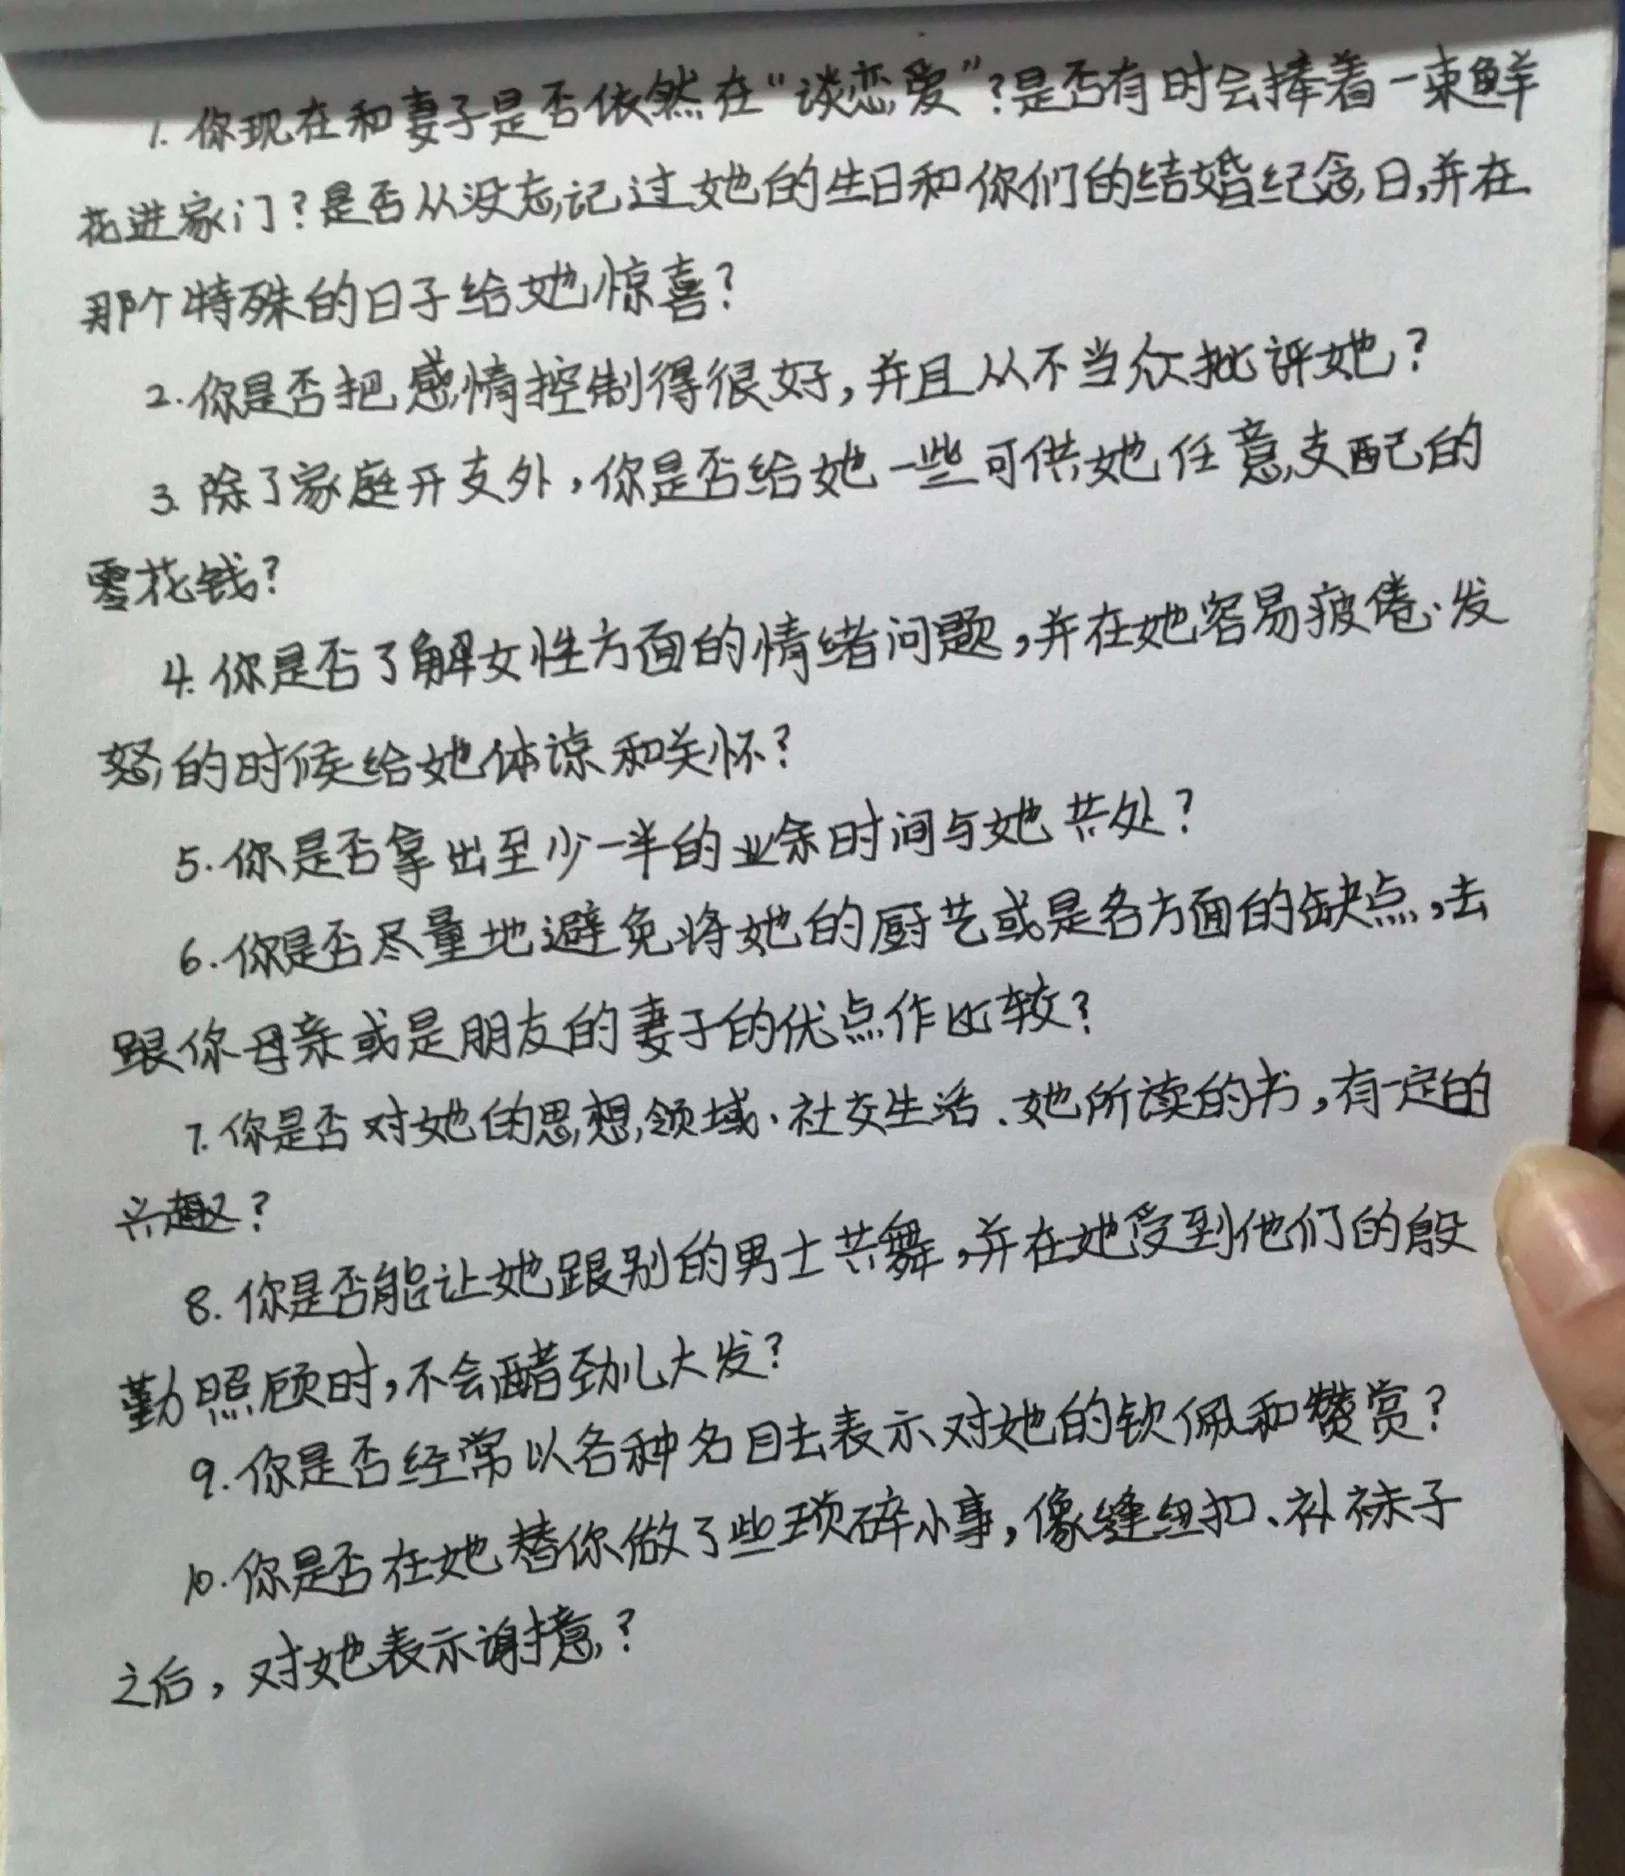 1. 你现在和妻子是否依然在“谈恋爱”?是否有时会捧着一束鲜
花进家门?是否从没忘记过她的生日和你们的结婚纪念日,并在
那个特殊的日子给她惊喜?
2. 你是否把感情控制得很好,并且从不当众批评她?
3. 除了家庭开支外,你是否给她一些可供她任意支配的
零花钱?
4. 你是否了解女性方面的情绪问题,并在她容易疲倦、发
怒的时候给她体谅和关怀?
5. 你是否拿出至少一半的业余时间与她共处?
6. 你是否尽量地避免将她的厨艺或是各方面的缺点,去
跟你母亲或是朋友的妻子的优点作比较?
7. 你是否对她的思想领域、社交生活、她所读的书,有一定的
兴趣?
8. 你是否能让她跟别的男士共舞,并在她受到他们的殷
勤照顾时,不会醋劲儿大发?
9. 你是否经常以各种名目去表示对她的钦佩和赞赏?
10. 你是否在她替你做了些琐碎小事,像缝纽扣、补袜子
之后,对她表示谢意?